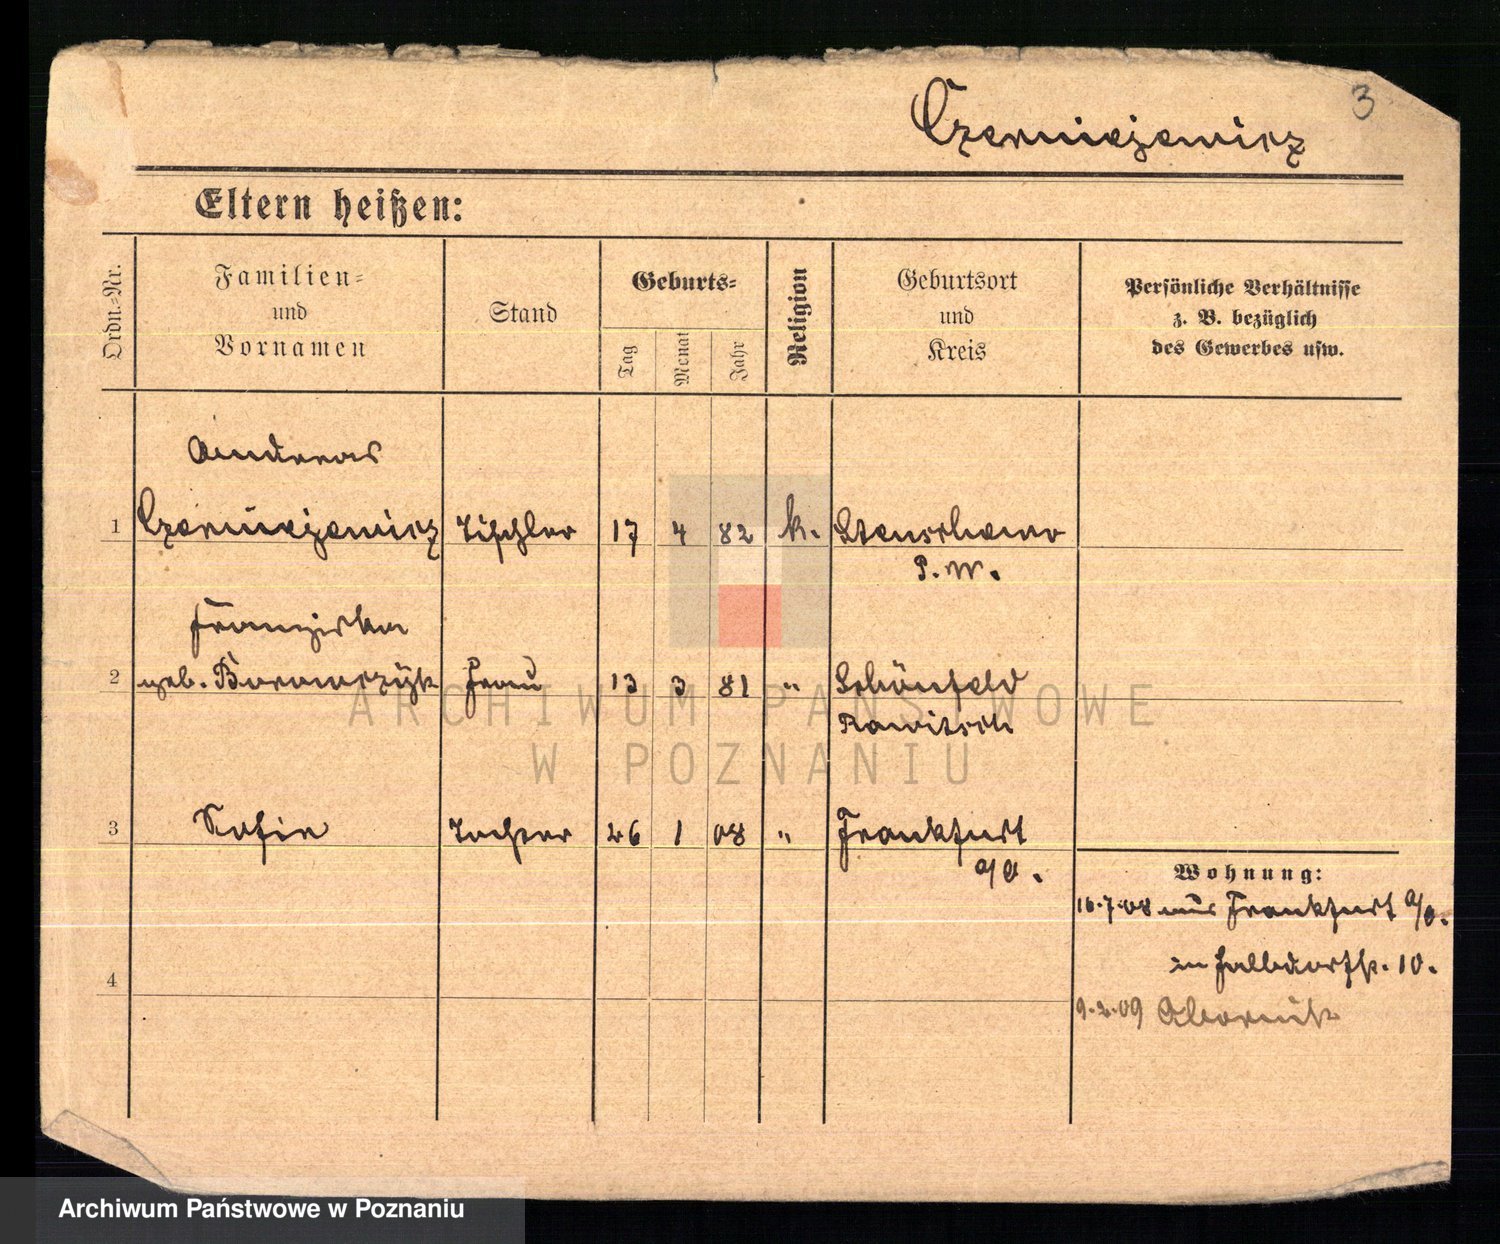 3
Czerniejewicz
Eltern heißen:
Ordn.=Nr.
Familien=
und
Vornamen
Stand
Geburts=
Tag
Monat
Jahr
Religion
Geburtsort
und
Kreis
Persönliche Verhältnisse
z. B. bezüglich
des Gewerbes usw.
Andreas
1 Czerniejewicz Tischler 17 4 82 k. Stenschewo
P. W.
Franziska
2 geb. Frau 13 3 81 " Schönfeld
Rawitsch
3 Sofie Tochter 26 1 08 " Frankfurt
a/O.
Wohnung:
16.7.08 aus Frankfurt a/O.
10.
4
9.2.09 Obornik
ARCHIWUM PAŃSTWOWE
W POZNANIU
Archiwum Państwowe w Poznaniu